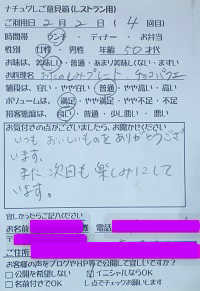 ナチュクレご意見箱(レストラン用)
ご利用日 2月 2日 (4 回目)
時間帯 ランチ ・ ディナー ・ お弁当
性別 女性 ・ 男性 年齢 50才代
お味は、美味しい・普通・あまり美味しくない・まずい
お料理名 おたのしみプレート チョコパフェ
値段は、安い・やや安い・普通・やや高い・高い
ボリュームは、満足・やや満足・やや不足・不足
接客態度は、良い・普通・少し悪い・悪い
お気付きの点がございましたら、お聞かせください
いつも おいしいものを ありがとうござ
います。
また 次回も 楽しみにして
います。
宜しかったらご記入ください
お名前
電話
ご住所
お客様の声をブログやHP等で公開して宜しいですか?
□公開を希望しない ☑イニシャルならOK
□お名前付きでOK レ点でチェックお願いします